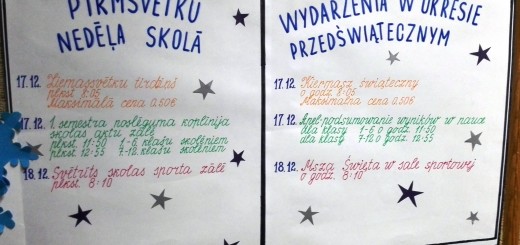 PIRMSVĒTKU
NEDĒĻA SKOLĀ
17.12. Ziemassvētku tirdziņš
plkst. 8:05
Maksimālā cena 0.50€
17.12. 1. semestra noslēguma koplīnija
skolas aktu zālē
plkst. 11:50 1-6. klašu skolēniem
plkst. 12:35 7-12. klašu skolēniem
18.12. Svētrīts skolas sporta zālē
plkst. 8:10
WYDARZENIA W OKRESIE
PRZEDŚWIĄTECZNYM
17.12. Kiermasz świąteczny
o godz. 8:05
Maksimalna cena 0.50€
17.12. Apel podsumowanie wyników w nauce
dla klasy 1-6 o godz. 11:50
dla klasy 7-12 o godz. 12:35
18.12. Msza Święta w sale sportowej
o godz. 8:10